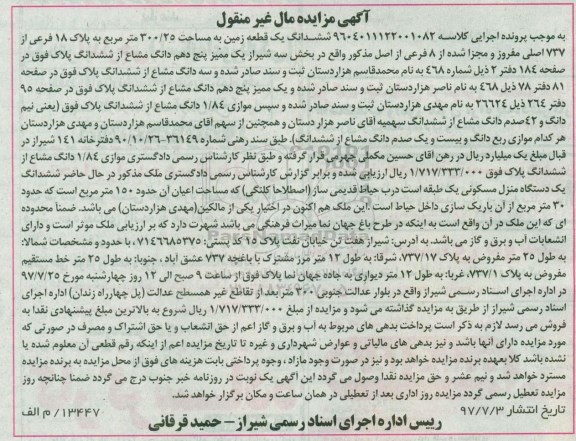 آگهی مزایده مال غیر منقول
به موجب پرونده اجرایی کلاسه ۹۶۰۴۰۱۱۱۲۲۰۰۱۰۸۲ ششدانگ یک قطعه زمین به مساحت ۳۰۰/۲۵ متر مربع به پلاک ۱۸ فرعی از
۷۳۷ اصلی مفروز و مجزا شده از ۸ فرعی از اصل مذکور واقع در بخش سه شیراز یک ممیز پنج دهم دانگ مشاع از ششدانگ پلاک فوق در
صفحه ۱۸۴ دفتر ۲ ذیل شماره ۴۶۸ به نام محمدقاسم هزاردستان ثبت و سند صادر شده و سه دانگ مشاع از ششدانگ پلاک فوق در صفحه
۸۱ دفتر ۷۸ ذیل ۴۶۸ به نام ناصر هزاردستان ثبت و سند صادر شده و یک ممیز پنج دهم دانگ مشاع از ششدانگ پلاک فوق در صفحه ۹۵
دفتر ۲۶۴ ذیل ۲۶۶۲۴ به نام مهدی هزاردستان ثبت و سند صادر شده و سپس موازی ۱/۸۴ دانگ مشاع از ششدانگ پلاک فوق (یعنی نیم
دانگ و ۴۲صدم دانگ مشاع از ششدانگ سهمیه آقای ناصر هزار دستان و همچنین از سهم آقای محمدقاسم هزاردستان و مهدی هزاردستان
هر کدام موازی ربع دانگ و بیست و یک صدم دانگ مشاع از ششدانگ) طبق سند رهنی شماره ۳۶۱۴۹-۹۰/۱۰/۲۶ دفترخانه ۱۴۱ شیراز در
قبال مبلغ یک میلیارد ریال در رهن آقای حسین مکملی جهرمی قرار گرفته و طبق نظر کارشناس رسمی دادگستری موازی ۱/۸۴ دانگ مشاع از
ششدانگ پلاک فوق ۱/۷۱۷/۳۳۳/۰۰۰ ریال ارزیابی شده و برابر گزارش کارشناس رسمی دادگستری ملک مذکور در حال حاضر ششدانگ
یک دستگاه منزل مسکونی یک طبقه است درب حیاط قدیمی ساز (اصطلاحا کلنگی) که مساحت اعیان آن حدود ۱۵۰ متر مربع است که حدود
۳۰ متر مربع از آن باریک سازی داخل حیاط است. این ملک هم اکنون در اختیار یکی از مالکین(مهدی هزاردستان) می باشد. ضمنا محدوده
ای که این ملک در آن واقع است به اینکه در طرح باغ جهان نما میراث فرهنگی می باشد شهرت دارد که بر ارزیابی ملک موثر است و دارای
انشعابات آب و برق و گاز می باشد. به آدرس: شیراز هفت تن خیابان نفت پلاک ۱۵ کد پستی: ۷۱۴۶۶۸۵۳۷۵، با حدود و مشخصات شمالا:
به طول ۲۵ متر مفروض به پلاک ۷۳۷/۱۷، شرقا: به طول ۱۲ متر مرز مشترک با باغچه ۷۳۷ عشق آباد ، جنوبا: به طول ۲۵ متر خط مستقیم
مفروض به پلاک ۷۳۷/۱، غربا: به طول ۱۲ متر دیواری به جاده جهان نما پلاک فوق از ساعت ۹ صبح الی ۱۲ روز چهارشنبه مورخ ۹۷/۷/۲۵
در اداره اجرای اسناد رسمی شیراز واقع در بلوار عدالت جنوبی ۲۰۰ متر بعد از تقاطع غیر همسطح عدالت (پل چهارراه زندان) اداره اجرای
اسناد رسمی شیراز از طریق به مزایده گذاشته می شود و مزایده از مبلغ ۱/۷۱۷/۳۳۳/۰۰۰ ریال شروع به بالاترین مبلغ پیشنهادی نقدا به
فروش می رسد لازم به ذکر است پرداخت بدهی های مربوط به آب و برق و گاز اعم از حق انشعاب و یا حق اشتراک و مصرف در صورتی که
مورد مزایده دارای آنها باشد و نیز بدهی های مالیاتی و عوارض شهرداری و غیره تا تاریخ مزایده اعم از اینکه رقم قطعی آن معلوم شده یا
نشده باشد کلا بعهده برنده مزایده خواهد بود و نیز در صورت وجود مازاد ، وجوه پرداختی بابت هزینه های فوق از محل مزایده به برنده مزایده
مسترد خواهد شد و نیم عشر و حق مزایده نقدا وصول می گردد این آگهی یک نوبت در روزنامه خبر جنوب درج می گردد ضمنا چنانچه روز
مزایده تعطیل رسمی گردد مزایده روز اداری بعد از تعطیلی در همان ساعت و مکان برگزار خواهد شد.
تاریخ انتشار ۹۷/۷/۳
۱۳۴۴۷/ م الف
رییس اداره اجرای اسناد رسمی شیراز- حمید قرقانی